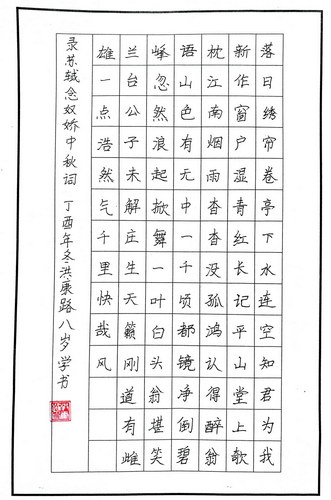 落日绣帘卷亭下水连空知君为我
新作窗户湿青红长记平山堂上欹
枕江南烟雨杳杳没孤鸿认得醉翁
语山色有无中一千顷都镜净倒碧
峰忽然浪起掀舞一叶白头翁堪笑
兰台公子未解庄生天籁刚道有雌
雄一点浩然气千里快哉风
录苏轼念奴娇中秋词 丁酉年冬洪康路八岁学书